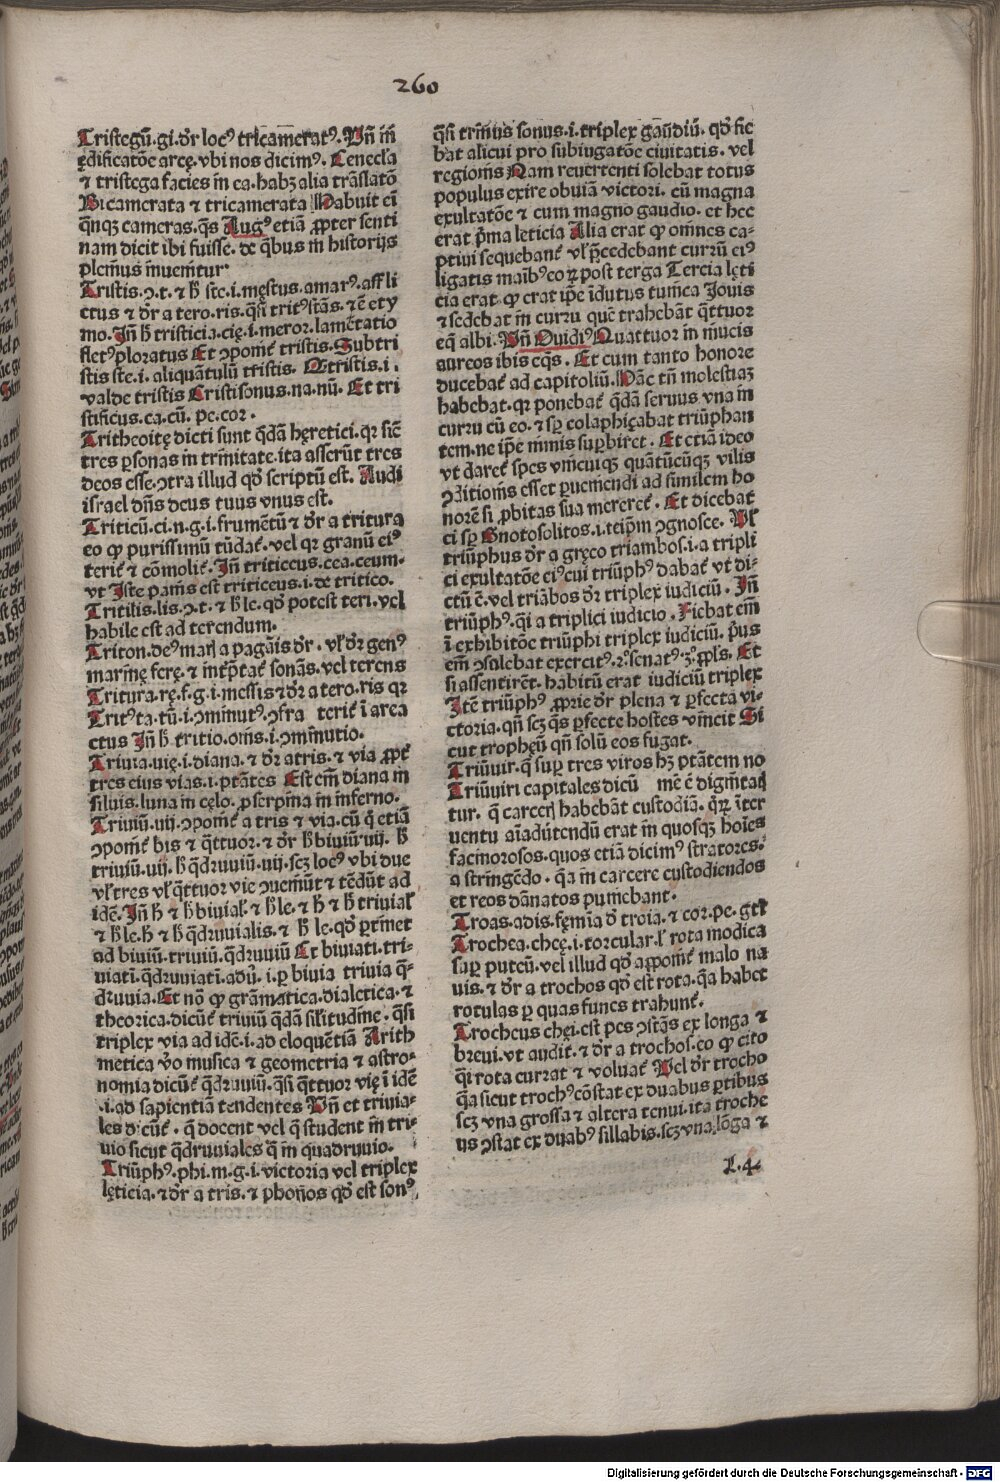 260
Tristegū.gi.dr̄ locꝰ tricameratꝰ. Vn̄ in
ędificatōe arcę. vbi nos dicimꝰ. Cenecla
⁊ tristega facies in ea. habꝫ alia trāslatō
Bicamerata ⁊ tricamerata Habuit ei
qͥnqꝫ cameras. qͣs Augꝰ etiā ꝓpter senti
nam dicit ibi fuisse. de qͥbus in historijs
plenius inuenitur
Tristis.ꝯ.t. ⁊ h̄ ste.i.męstus.amarꝰ.affli
ctus ⁊ dr̄ a tero.ris.qͣsi tritꝰ stās. ⁊ ē ety
mo. In̄ h̄ tristicia.cię.i.meror.lamētatio
fletꝰ ploratus Et ꝯponit̄ tristis. Subtri
stis ste.i. aliquātulū tristis. Ꝑtristis.i.
valde tristis Tristisonus.na.nū. Et tri
stificus.ca.cū. pe.cor.
Tritheoitę dicti sunt qͥdā hęretici. qꝛ sic̄
tres ꝑsonas in trinitate. ita asserūt tres
deos esse. ꝯtra illud qd̄ scriptū est. Audi
israel dn̄s deus tuus vnus est.
Triticū.ci.n.g.i.frumētū ⁊ dr̄ a tritura
eo ꝙ purissimū tūdat̄. vel qꝛ granū eiꝰ
terit̄ ⁊ cōmolit̄. In̄ triticeus.cea.ceum.
vt Iste panis est triticeus.i.de tritico.
Tritilis.lis.ꝯ.t. ⁊ h̄ le. qd̄ potest teri. vel
habile est ad terendum.
Triton.deꝰ maꝝ a paganis dr̄. vl̄ dr̄ genꝰ
marinę ferę. ⁊ intͥptat̄ sonās. vel terens
Tritura.rę.f.g.i.messis ⁊ dr̄ a tero.ris qꝛ
Tritꝰ ta.tū.i.ꝯminutꝰ.ꝯfra terit̄ i area
ctus In̄ h̄ tritio.onis.i.ꝯminutio.
Triuia.uię.i.diana. ⁊ dr̄ a tris. ⁊ via ꝓpt̄
tres eius vias.i.ptātes Est em̄ diana in
siluis. luna in cęlo. ꝓserpina in inferno.
Triuiū.uij.ꝯponit̄ a tris ⁊ via. cū q̄ etiā
ꝯponit̄ bis ⁊ qͣttuor. ⁊ dr̄ h̄ biuiū.uij. h̄
triuiū.uij. h̄ qͣdruuiū.uij.scꝫ locꝰ vbi due
vl̄ tres vl̄ qͣttuor vie ꝯueniūt ⁊ tēdūt ad
idē. In̄ h̄ ⁊ h̄ biuial̄. ⁊ h̄ le. ⁊ h̄ ⁊ h̄ triuial̄
⁊ h̄ le. h̄ ⁊ h̄ qͣdruuialis. ⁊ h̄ le. qd̄ ꝑtinet
ad biuiū. triuiū. qͣdruuiū Et biuiati. tri-
uiati. qͣdruuiati. adū.i.ꝑ biuia triuia qͣ-
druuia. Et nō ꝙ grāmatica. dialetica. ⁊
theorica. dicūt̄ triuiū qͣdā sil̄itudine. qͣsi
triplex via ad idē.i. ad eloquētiā Arith
metica v̊o musica ⁊ geometria ⁊ astro-
nomia dicūt̄ qͣdruuiū. qͣsi qͣttuor vię i idē
.i.ad sapientiā tendentes Vn̄ et triuia-
les dicūt̄. qͥ docent vel qͥ student in tri-
uio sicut qͣdruuiales qͥ in quadruuio.
Triūphꝰ.phi.m.g.i.victoria vel triplex
lęticia. ⁊ dr̄ a tris. ⁊ phonos qd̄ est sonꝰ.
qͣsi trinus sonus.i.triplex gaudiū. qd̄ fie
bat alicui pro subiugatōe ciuitatis. vel
regionis Nam reuertenti solebat totus
populus exire obuiā victori. cū magna
exultatōe ⁊ cum magno gaudio. et hec
erat pͥma leticia Alia erat ꝙ omnes ca-
ptiui sequebant̄ vl̄ p̄cedebant currū eiꝰ
ligatis maībꝰ eoꝝ post terga Tercia lęti
cia erat ꝙ erat ip̄e idutus tunica Iouis
⁊ sedebat in curru quē trahebāt qͣttuor
eq̄ albi. Vn̄ Ouidiꝰ Quattuor in niueis
aureos ibis eqͥs. Et cum tanto honore
ducebat̄ ad capitoliū. Hāc tn̄ molestiaꝫ
habebat. qꝛ ponebat̄ qͥdā seruus vna in
curru cū eo. ⁊ sꝑ colaphiçabat triūphan
tem. ne ip̄e nimis suꝑbiret. Et etiā ideo
vt daret̄ spes vnicuiqꝫ quātūcūqꝫ vilis
ꝯditionis esset ꝑueniendi ad similem ho
norē si ꝓbitas sua mereret̄. Et dicebat
ei sꝑ Gnotosolitos.i.teip̄m ꝯgnosce. Vl̄
triūphus dr̄ a gręco triambos.i.a tripli
ci exultatōe eiꝰ cui triūphꝰ dabat̄ vt di-
ctū ē. vel triābos dr̄ triplex iudiciū. In̄
triūphꝰ.qͣsi a triplici iudicio. Fiebat em̄
i exhibitōe triūphi triplex iudiciū. pͥus
em̄ ꝯsolebat exercitꝰ.2ͦ.senatꝰ.3ͦ.ppl̄s. Et
si assentirēt. habitū erat iudiciū triplex
Itē triūphꝰ ꝓprie dr̄ plena ⁊ ꝑfecta vi-
ctoria. qn̄ scꝫ qͥs ꝑfecte hostes vincit Si
cut tropheū qn̄ solū eos fugat.
Triūuir.qͥ suꝑ tres viros hꝫ ptātem no
Triūuiri capitales dicū mē ē dignitaꝉ
tur. qͥ carceꝝ habebāt custodiā. qͦꝝ īter
uentu aīaduͥtendū erat in quosqꝫ hoīes
facinorosos. quos etiā dicimꝰ stratores.
a stringēdo. qͥa in carcere custodiendos
et reos dānatos punicbant.
Troas.adis.fęmīa d̄ troia. ⁊ cor.pe.gtī
Trochea.cheę.i.torcular.l̄ rota modica
suꝑ puteū. vel illud qd̄ apponit̄ malo na
uis. ⁊ dr̄ a trochos qd̄ est rota. qͥa habet
rotulas ꝑ quas funes trahunt̄.
Trocheus cheį.est pes ꝯstās ex longa ⁊
breui. vt audit. ⁊ dr̄ a trochos. eo ꝙ cito
qͣsi rota currat ⁊ voluat̄ Vel dr̄ trocho
qͥa sicut trochꝰ cōstat ex duabus ꝑtibus
scꝫ vna grossa ⁊ altera tenui. ita troche
us ꝯstat ex duabꝰ sillabis.scꝫ vna lōga ⁊
L.4.
Digitalisierung gefördert durch die Deutsche Forschungsgemeinschaft - DFG